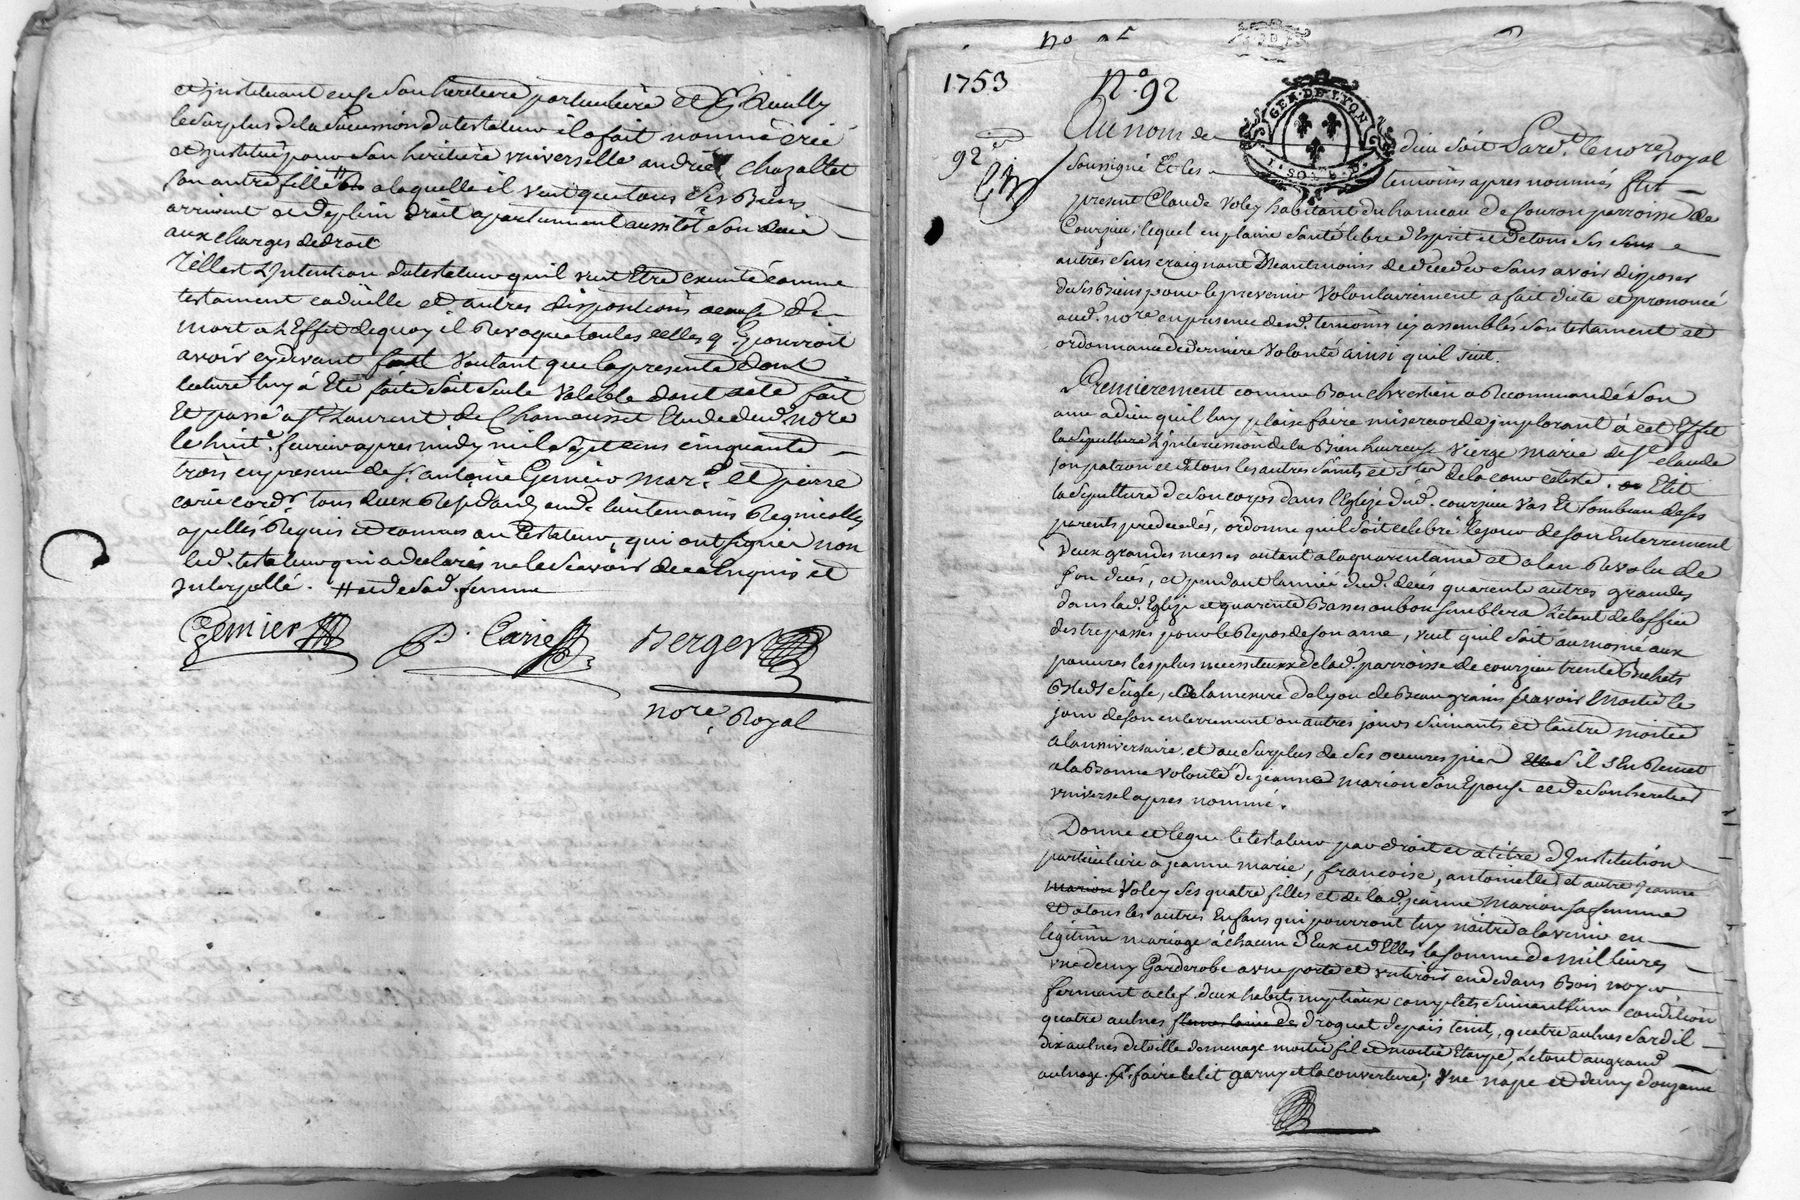 et instituant en ce son heritiere particuliere et
le surplus de la succession du testateur il a fait nommé créé
et institué pour son heritiere universelle andrée chazallet
son autre fille # a laquelle il veut que tous ses Biens
arrivent et de plein droit apartiennent aussitôt son decè
aux charges de droit
Telle est L'Intention du testateur qu'il veut Etre executé comme
testament codicille et autres dispositions a cause de
mort a L'Effet de quoy il Revoque toutes celles q. pourroit
avoir cy devant fait Voulant que la presente dont
lecture luy à Eté faite soit seule Valable dont acte fait
Et passé a St Laurent de Chamousset Etude dud. nore
le huite. fevrier apres midy mil sept cens cinquante
trois en presence de sr. antoine Gemier mar.d et pierre
carie cordr. tous deux
apellés Requis et connus au testateur, qui ont signé non
led. testateur qui a declaré ne le sçavoir de ce Enquis et
Interpellé. # et de sad. femme
Gemier P. Carie Berger
nore Royal
1753 N.o 92
GEN. DE LYON
Au nom de dieu soit Pard. le nore Royal
92e
soussigné Et les temoins apres nommés fut
present Claude Voley habitant du hameau de parroisse de
Courzieu, lequel en plaine santé libre d'Esprit et de tous ses sens
autres sens craignant Neantmoins de deceder sans avoir disposer
de ses Biens pour le prevenir Volontairement a fait dicté et prononcé
aud. nore en presence desd. temoins icy assemblés son testament et
ordonnance de derniere Volonté ainsi quil suit.
Premierement comme Bon chrestien a Recommandé son
ame a dieu qu'il luy plaise faire misericorde implorant à cet Effet
l'intercession de la Bien heureuse Vierge marie de St claude
son patron et de tous les autres saints et stes de la cour celeste. Elit
la sepulture de son corps dans l'Eglize dud. courzieu Vas Et tombeau de ses
parents predecedés, ordonne quil soit celebré le jour de son Enterrement
deux grandes messes autant a la quarantaine et a l'an Revolu de
son decés, et pendant l'année dud. decés quarente autres grandes
dans lad. Eglize et quarente Basses ou bon semblera Le tout de l'office
des trepassés pour le Repos de son ame, veut quil soit aumosné aux
pauvres les plus necessiteux de lad. parroisse de courzieu trente Bichets
Bled seigle, a la mesure de lyon de Beau grain sçavoir Moitié le
jour de son enterrement ou autres jours suivants et l'autre moitié
a l'anniversaire et au surplus de ses oeuvres pies il s'En Remet
a la Bonne volonté de jeanne marion son Epouse et de son heritier
universel apres nommé.
Donne et legue le testateur par droit et a titre d'Institution
particuliere à jeanne marie, francoise, antoinette et autre jeanne
marion Voley ses quatre filles et de lad. jeanne Marion sa femme
Et a tous les autres Enfans qui pourront luy naitre a l'avenir en
legitime mariage à chacun d'Eux et d'Elles la somme de mil livres
une demy Garderobe a une porte et un tiroir en dedans Bois noyer
fermant a clef, deux habits nuptiaux complets suivant leur condition
quatre aulnes droguet de païs teint, quatre aulnes sardil
dix aulnes de toille de menage moitié fil et moitié Etoupe, le tout au grand
aulnage pr. faire le lit garny et la couverture, Une nape et demy douzaine